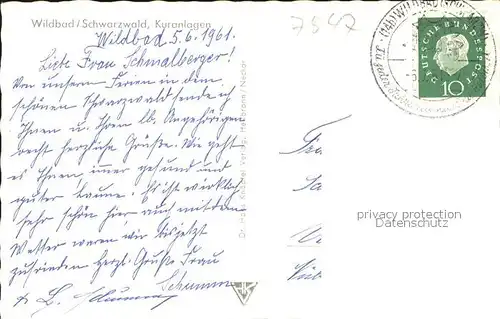 Wildbad/Schwarzwald, Kuranlagen
7547
Wildbad 5.6.1961.
Liebe Frau Schmalberger!
Von unseren Ferien in dem
schönen Schwarzwald sende ich
Ihnen u. Ihren lb. Angehörigen
recht herzliche Grüße. Wie geht
es Ihnen, immer gesund und
guter Laune. Es ist wirklich
sehr schön hier auch mit dem
Wetter waren wir bis jetzt
zufrieden Herzl. Grüße Frau
DEUTSCHE BUNDESPOST
10
Heilbronn/Neckar
privacy protection
Datenschutz